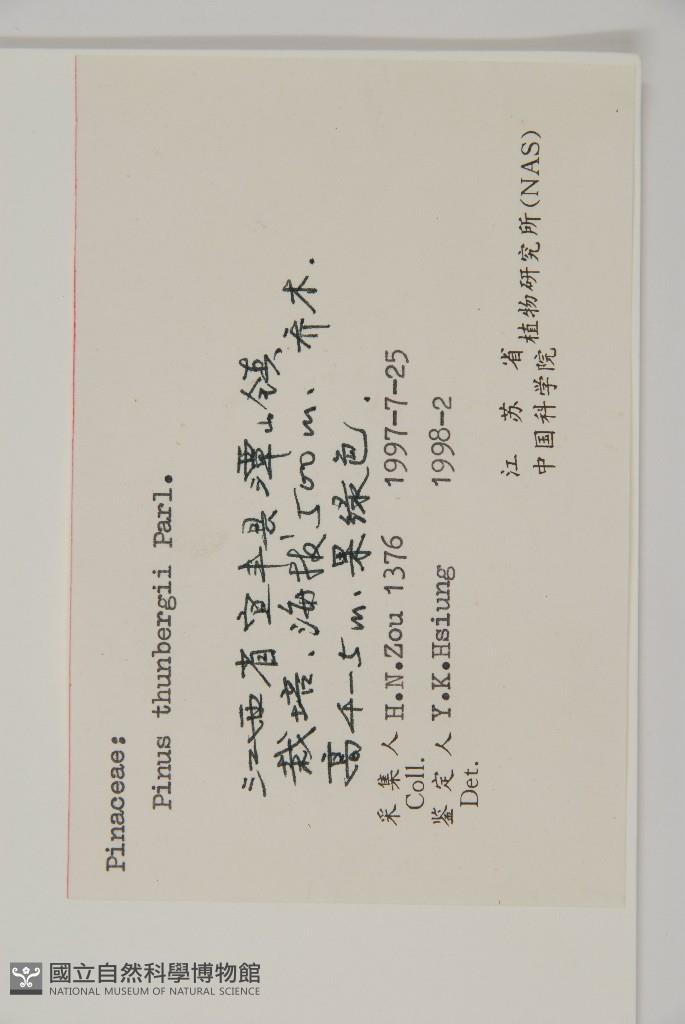 Pinaceae:
Pinus thunbergii Parl.
江西省宜丰县潭山镇、
栽培、海拔500m、乔木.
高4-5m、果绿色.
采集人 H.N.Zou 1376 1997-7-25
Coll.
鉴定人 Y.K.Hsiung 1998-2
Det.
江苏省
中国科学院 植物研究所(NAS)
國立自然科學博物館
NATIONAL MUSEUM OF NATURAL SCIENCE